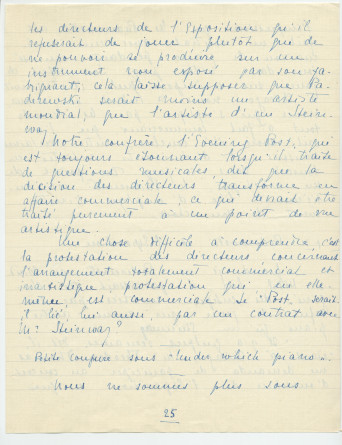 les directeurs de l'Exposition qu'il
refuserait de jouer plutôt que de
ne pouvoir se produire sur un
instrument non exposé par son fa-
briquant, cela laisse supposer que Pa-
derewski serait moins un artiste
mondial que l'artiste d'un Stein-
way.
Notre confrère l'Evening Post, qui
est toujours étonnant lorsqu'il traite
de questions musicales, dit que la
décision des directeurs transforme en
affaire commerciale, ce qui devrait être
traité purement à un point de vue
artistique.
Une chose difficile à comprendre, c'est
la protestation des directeurs concernant
l'arrangement totalement commercial et
inartistique protestation qui, en elle
même, est commerciale. Le "Post" serait
il lié, lui aussi, par un contrat avec
Mr Steinway?
Petite coupure sous "Under which piano"..
Nous ne sommes plus sous
25